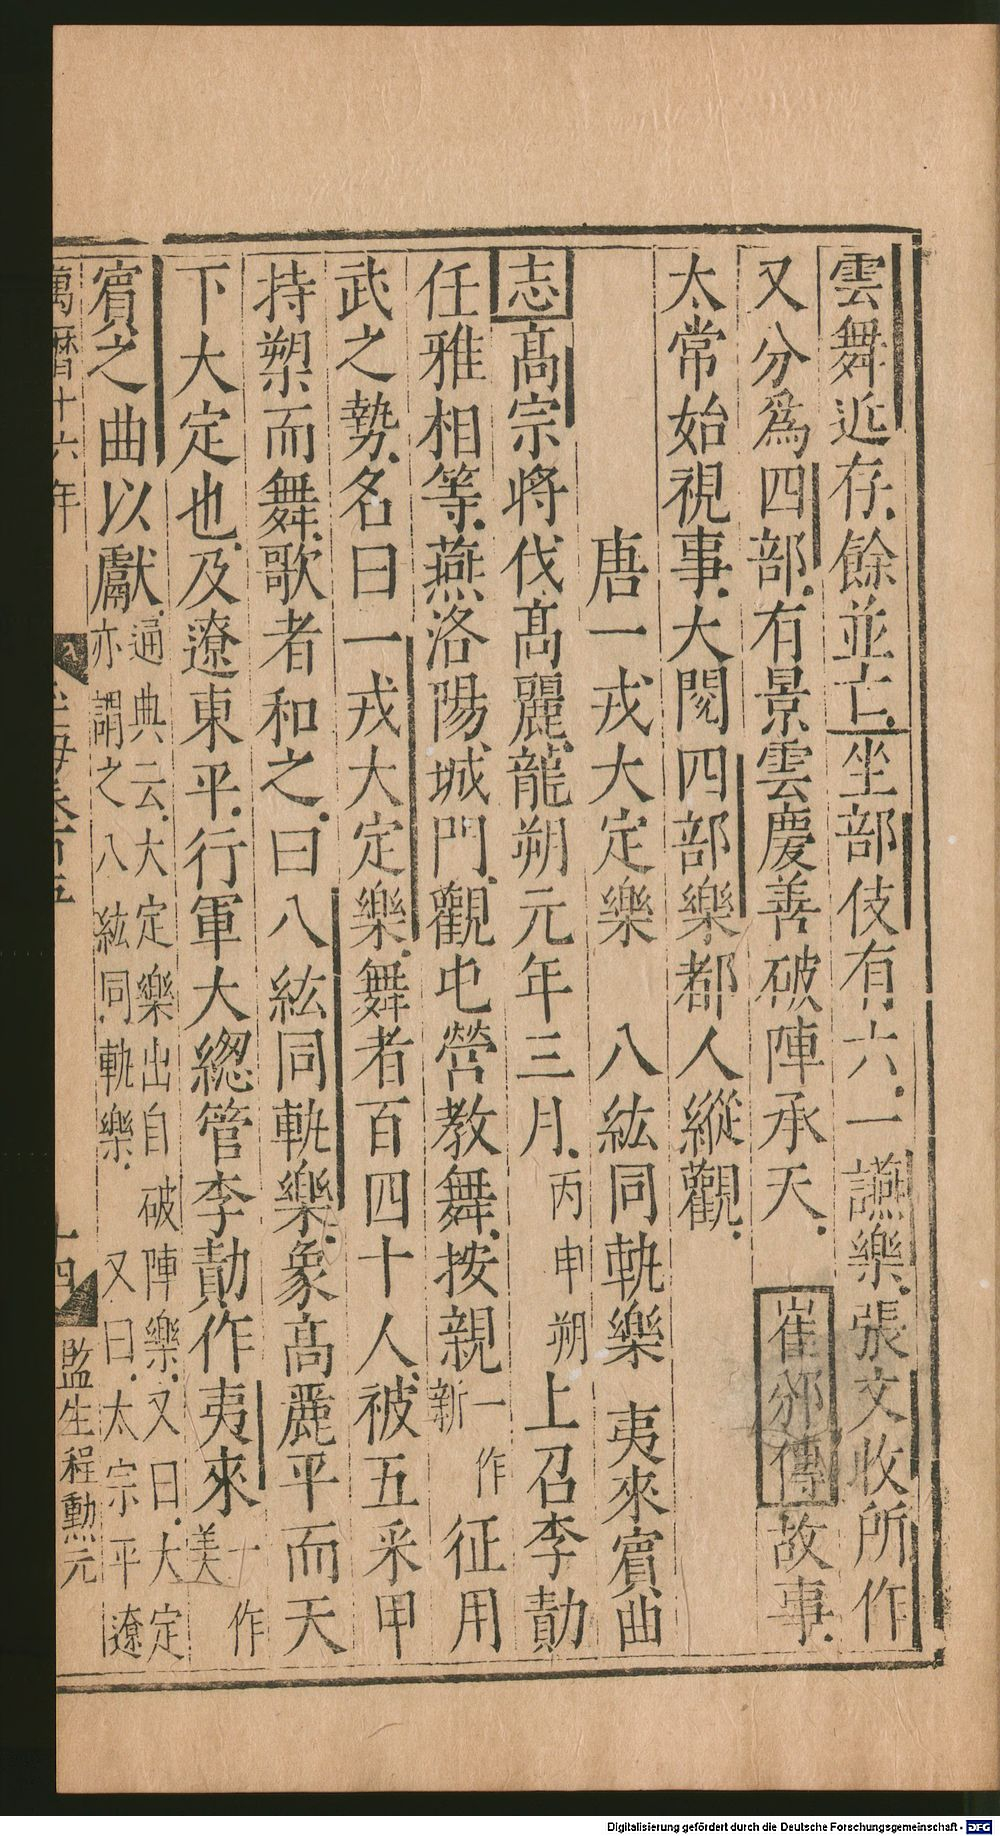 雲舞近存餘並亡坐部伎有六一讌樂張文收所作
又分爲四部有景雲慶善破陣承天崔邠傳故事
太常始視事大閱四部樂都人縱觀
唐一戎大定樂 八紘同軌樂 夷來賓曲
志高宗將伐高麗龍朔元年三月丙申朔上召李勣
任雅相等燕洛陽城門觀屯營教舞按親一作新征用
武之勢名曰一戎大定樂舞者百四十人被五采甲
持槊而舞歌者和之曰八紘同軌樂象高麗平而天
下大定也及遼東平行軍大總管李勣作夷來一作美
賓之曲以獻通典云大定樂出自破陣樂又曰大定
亦謂之八紘同軌樂 又曰太宗平遼
萬曆十六年
十四
監生程勲元
Digitalisierung gefördert durch die Deutsche Forschungsgemeinschaft - DFG